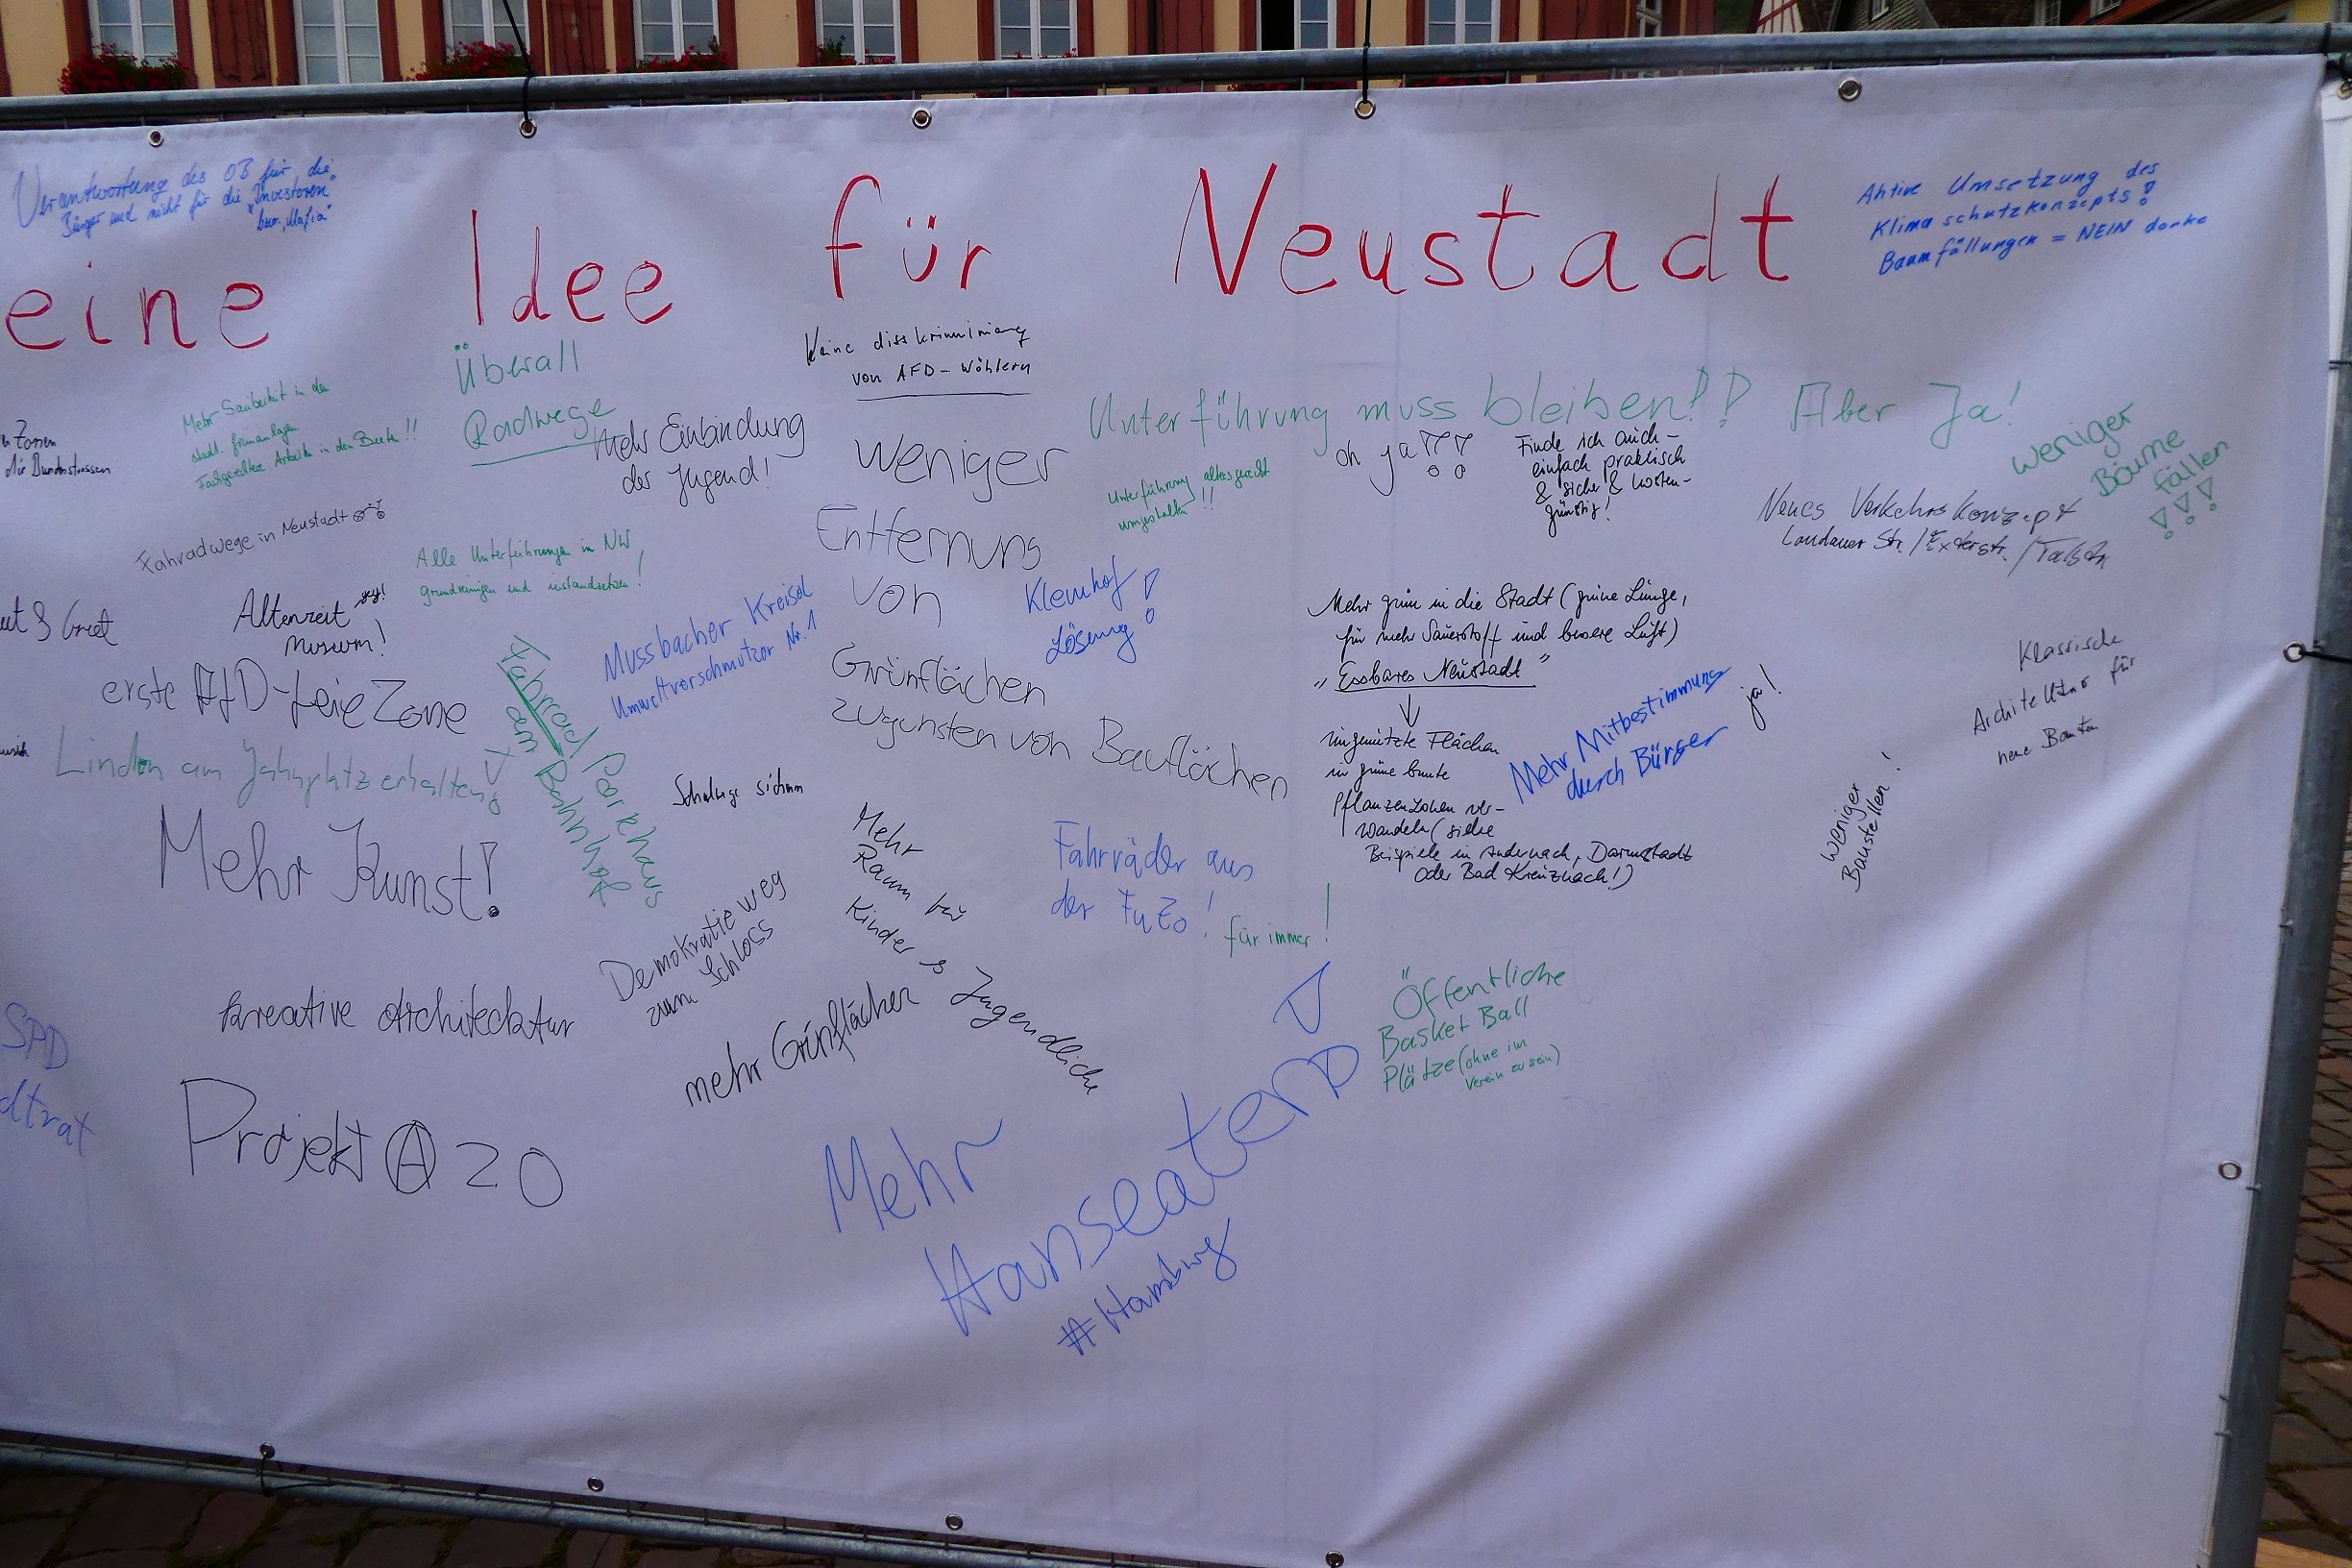 Verantwortung des OB für die
Bürger und nicht für die "Investoren"
bzw. "Mafia"
eine Idee für Neustadt
Aktive Umsetzung des
Klimaschutzkonzepts!
Baumfällungen = NEIN danke
Keine disskriminierung
von AFD-Wählern
Überall
Radwege
Mehr Sauberkeit in den
städt. Grünanlagen
Fachgerechte Arbeiten in den Beeten!!
die Bundesstrassen
Mehr Einbindung
der Jugend!
Unterführung muss bleiben!! Aber Ja!
oh ja!!!
Finde ich auch –
einfach praktisch
& sicher & kosten-
günstig!
Unterführung altersgerecht
umgestalten!!
weniger
Bäume
fällen
!!!
Neues Verkehrskonzept
Landauer Str./Exterstr./Talstr.
Weniger
Entfernung
von
Grünflächen
zugunsten von Bauflächen
Fahradwege in Neustadt
Alle Unterführungen in NW
grundreinigen und instandsetzen!
Altenzeit
Museum!
Mussbacher Kreisel
Umweltverschmutzer Nr. 1
Klemhof
Lösung!
Mehr grün in die Stadt (grüne Lunge,
für mehr Sauerstoff und bessere Luft)
"Essbares Neustadt"
ungenützte Flächen
in grüne bunte
Pflanzenzonen ver-
wandeln (siehe
Beispiele in Andernach, Darmstadt
oder Bad Kreuznach!)
Mehr Mitbestimmung
durch Bürger
ja!
Klassische
Architektur für
neue Bauten
weniger
Baustellen!
erste AfD-freie Zone
Linden am Jahnplatz erhalten!
Fahrrad Parkhaus
am Bahnhof
Schulwege sichern
Mehr Kunst!
Mehr
Raum für
Kinder & Jugendliche
Fahrräder aus
der FuZo!
für immer!
Demokratieweg
zum Schloss
kreative Architecktur
mehr Grünflächen
Öffentliche
Basket Ball
Plätze (ohne im
Verein zu sein)
SPD
dtrat
Projekt Ⓐ 20
Mehr
Hanseaten
#Hamburg